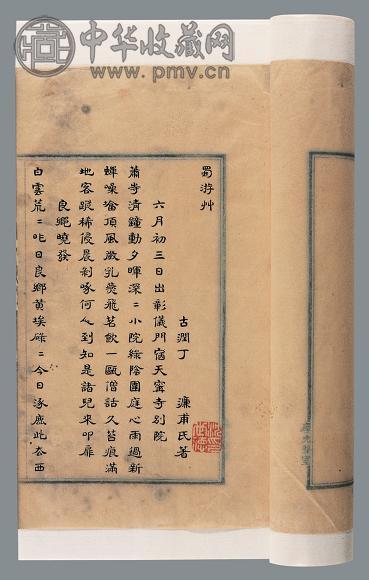 中华收藏网
www.pmv.cn
蜀游艸
古潤丁 濂甫氏著
六月初三日出彰儀門宿天甯寺別院
蕭寺清鐘動夕暉深〻小院綠陰圍庭心雨過新
蟬噪墖頂風微乳燕飛茗飲一甌僧話久苔痕滿
地客蹤稀侵晨剝啄何人到知是諸兒來叩扉
良鄉曉發
白雲荒〻昨日良鄉黃埃碌〻今日涿鹿此去西